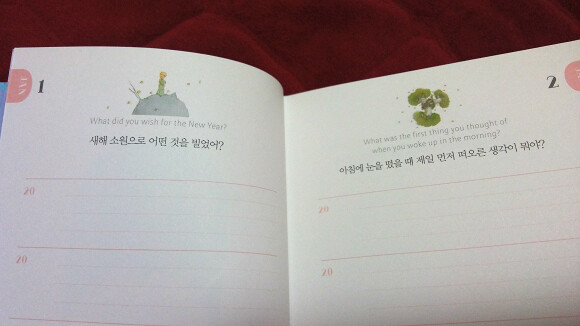 1
What did you wish for the New Year?
새해 소원으로 어떤 것을 빌었어?
20
20
2
What was the first thing you thought of
when you woke up in the morning?
아침에 눈을 떴을 때 제일 먼저 떠오른 생각이 뭐야?
20
20